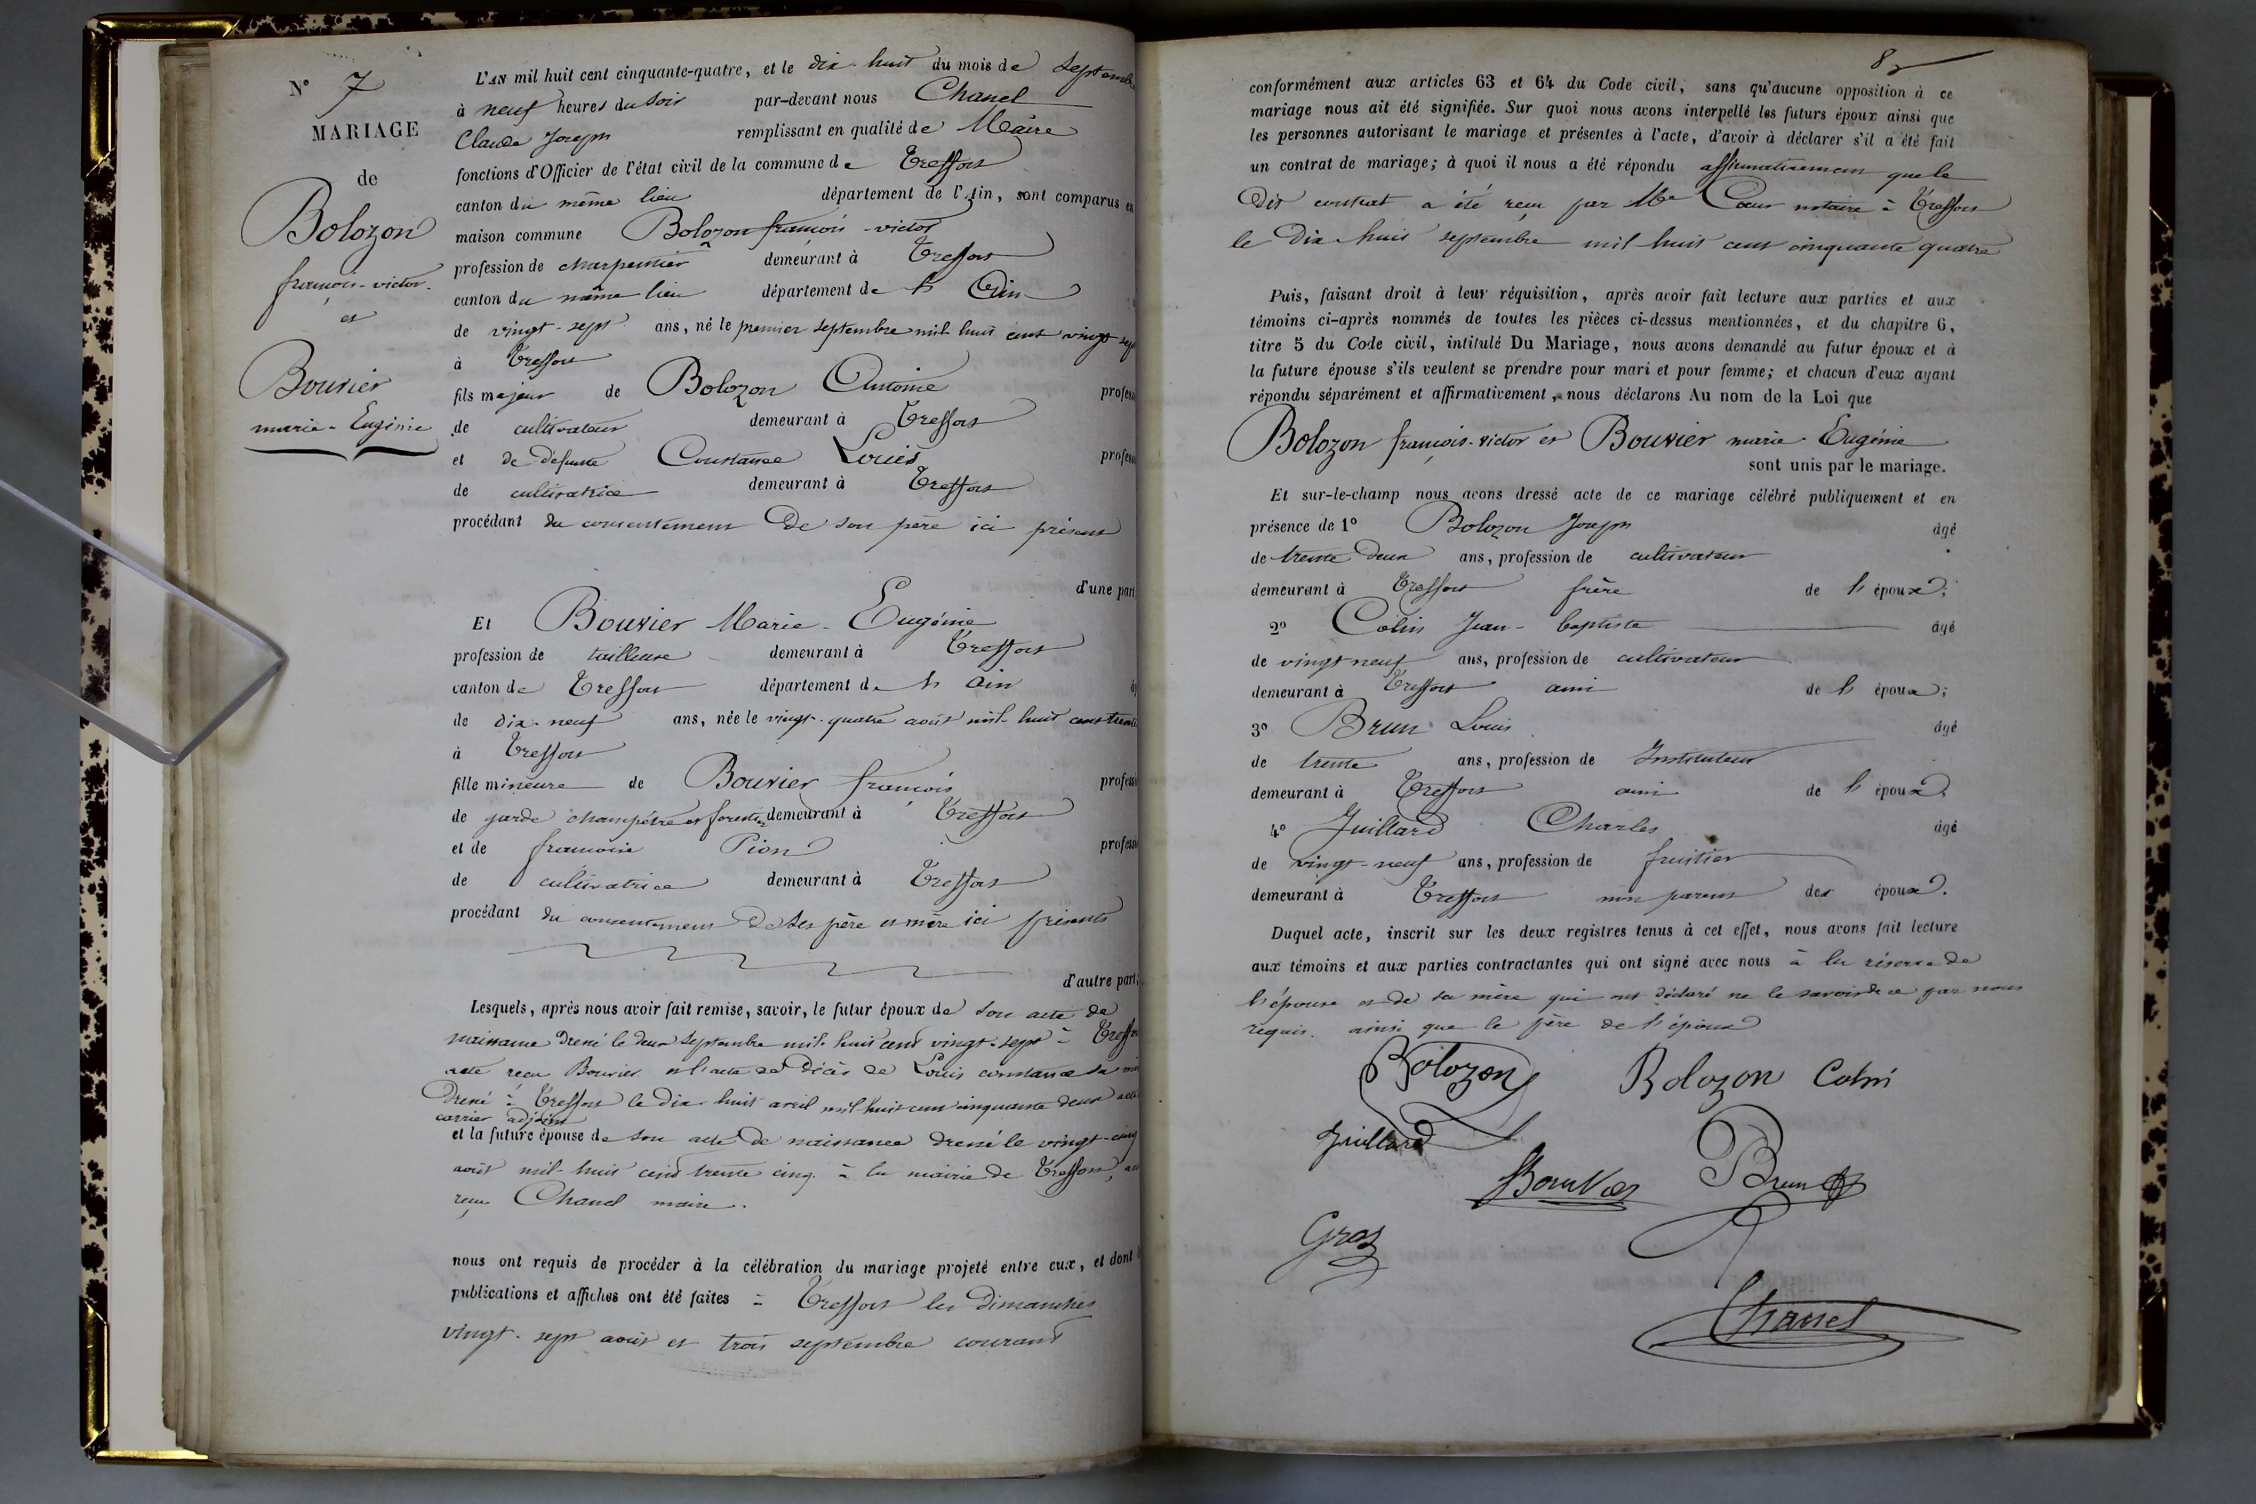 N° 7
MARIAGE
de
Bolozon
françois-victor
et
Bouvier
marie-Eugénie
L'AN mil huit cent cinquante-quatre, et le dix-huit du mois de septembre
à neuf heures du soir par-devant nous Chanel
Claude Joseph remplissant en qualité de Maire
fonctions d'Officier de l'état civil de la commune de Treffort
canton du même lieu département de l'Ain, sont comparus en
maison commune Bolozon françois-victor
profession de charpentier demeurant à Treffort
canton du même lieu département de l'Ain
de vingt-sept ans, né le premier septembre mil-huit cent vingt sept
à Treffort
fils majeur de Bolozon Antoine profess
de cultivateur demeurant à Treffort
et de défunte Constance Louis profess
de cultivatrice demeurant à Treffort
procédant du consentement de son père ici présent
d'une part
Et Bouvier Marie-Eugénie
profession de tailleuse demeurant à Treffort
canton de Treffort département de l'Ain
de dix-neuf ans, née le vingt-quatre août mil-huit cent trente
à Treffort
fille mineure de Bouvier françois profess
de garde champêtre et forestier demeurant à Treffort
et de françoise Pion profess
de cultivatrice demeurant à Treffort
procédant du consentement de ses père et mère ici présents
d'autre part;
Lesquels, après nous avoir fait remise, savoir, le futur époux de son acte de
naissance dressé le deux septembre mil-huit cent vingt-sept à Treffort
acte reçu Bouvier et l'acte de décès de Louis constance sa
dressé à Treffort le dix-huit avril mil-huit cent cinquante deux acte
carrier adjoint
et la future épouse de son acte de naissance dressé le vingt-cinq
août mil-huit cent trente cinq à la mairie de Treffort,
reçu Chanel maire.
nous ont requis de procéder à la célébration du mariage projeté entre eux, et dont
publications et affiches ont été faites à Treffort les dimanches
vingt-sept août et trois septembre courant
82
conformément aux articles 63 et 64 du Code civil, sans qu'aucune opposition à ce
mariage nous ait été signifiée. Sur quoi nous avons interpellé les futurs époux ainsi que
les personnes autorisant le mariage et présentes à l'acte, d'avoir à déclarer s'il a été fait
un contrat de mariage; à quoi il nous a été répondu affirmativement que le
dit contrat a été reçu par Me Cœur notaire à Treffort
le dix-huit septembre mil huit cent cinquante quatre
Puis, faisant droit à leur réquisition, après avoir fait lecture aux parties et aux
témoins ci-après nommés de toutes les pièces ci-dessus mentionnées, et du chapitre 6,
titre 5 du Code civil, intitulé Du Mariage, nous avons demandé au futur époux et à
la future épouse s'ils veulent se prendre pour mari et pour femme; et chacun d'eux ayant
répondu séparément et affirmativement, nous déclarons Au nom de la Loi que
Bolozon françois-victor et Bouvier marie-Eugénie
sont unis par le mariage.
Et sur-le-champ nous avons dressé acte de ce mariage célébré publiquement et en
présence de 1° Bolozon Joseph âgé
de trente deux ans, profession de cultivateur
demeurant à Treffort frère de l'époux;
2° Colin Jean-baptiste âgé
de vingt neuf ans, profession de cultivateur
demeurant à Treffort ami de l'époux;
3° Brun Louis âgé
de trente ans, profession de Instituteur
demeurant à Treffort ami de l'époux.
4° Juillard Charles âgé
de vingt-neuf ans, profession de fruitier
demeurant à Treffort non parent des époux.
Duquel acte, inscrit sur les deux registres tenus à cet effet, nous avons fait lecture
aux témoins et aux parties contractantes qui ont signé avec nous à la réserve de
l'épouse et de sa mère qui ont déclaré ne le savoir de ce par nous
requis. ainsi que le père de l'époux
Bolozon Bolozon Colin
Juillard
Bouvier Brun
Gros
Chanel